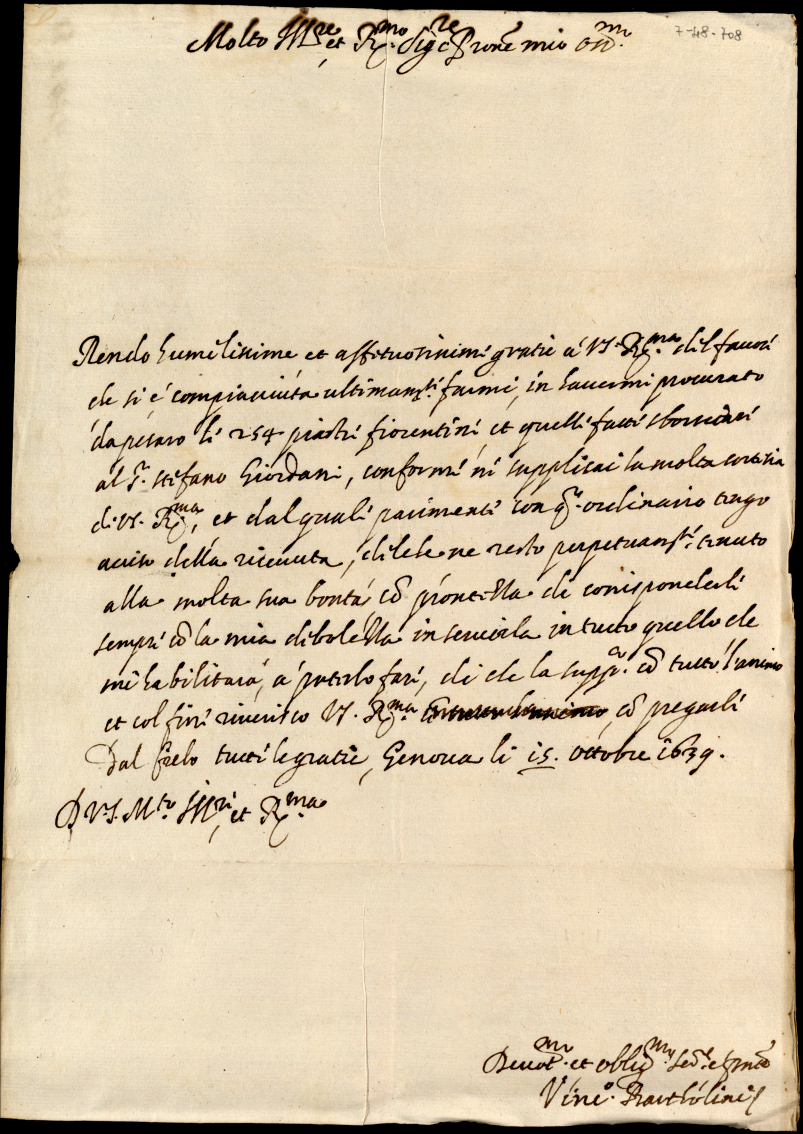 7-48-708
Molto Ill.re et R.mo Sig.re e Prone mio oss.mo
Rendo humilissime et affetuosissime gratie á V.S. R.ma del favore
che si é compiaciuta ultimam.te farmi, in havermi procurato
da pesaro li 254 piastre fiorentine, et quelle fatte sborsare
al S.r stefano Giordani, conforme ne supplicai la molta cortesia
di V.S. R.ma, et dal quale parimente con q.o ordinario tengo
aviso della ricevuta, di che le ne resto perpetuam.te tenuto
alla molta sua bontá cõ prontezza di corisponderli
sempre cõ la mia debolezza in servirla in tutto quello che
mi habilitará, á poterlo fare, di che la supp.co cõ tutto l'animo
et col fine riverisco V.S. R.ma cõ pregarli
Dal Cielo tutte le gratie, Genova li 15. ottobre 1639.
D V.S. M.to Ill.re, et R.ma
Devot.mo et oblig.mo
Vinc.o Bartholini